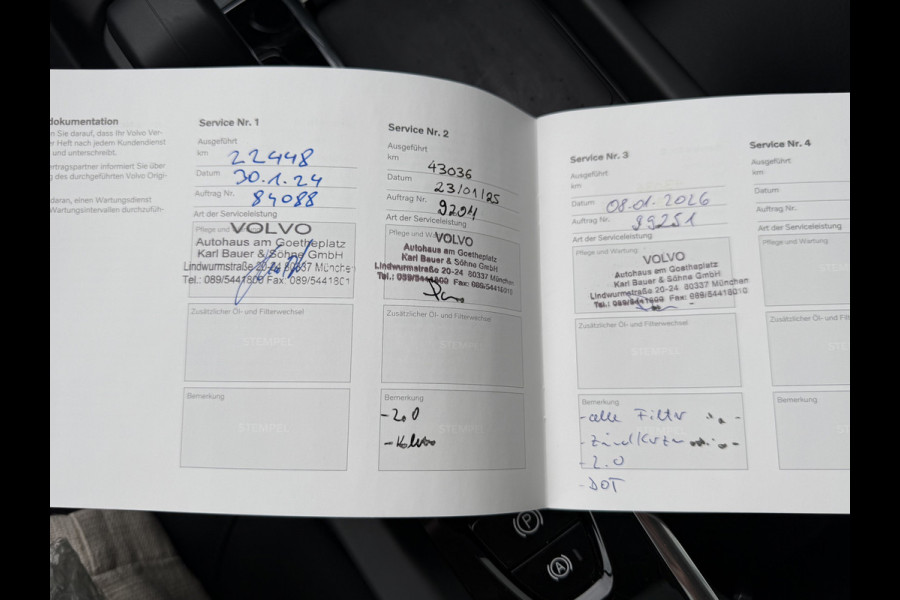 dokumentation
n Sie darauf, dass Ihr Volvo Ver-
r Heft nach jedem Kundendienst
und unterschreibt.
ertragspartner informiert Sie über
g des durchgeführten Volvo Origi-
daran, einen Wartungsdienst
Wartungsintervallen durchzufüh-
Service Nr. 1
Ausgeführt
km 22448
Datum 30.1.24
Auftrag Nr. 84088
Art der Serviceleistung
Pflege und
VOLVO
Autohaus am Goetheplatz
Karl Bauer & Söhne GmbH
Lindwurmstraße 20-24 80337 München
Tel.: 089/5441800 Fax: 089/5441801
Zusätzlicher Öl- und Filterwechsel
STEMPEL
Bemerkung
STEMPEL
Service Nr. 2
Ausgeführt
km 43036
Datum 23/01/25
Auftrag Nr. 9204
Art der Serviceleistung
Pflege und Wa
VOLVO
Autohaus am Goetheplatz
Karl Bauer & Söhne GmbH
Lindwurmstraße 20-24 80337 München
Tel.: 089/5441800 Fax: 089/54418010
Zusätzlicher Öl- und Filterwechsel
STEMPEL
Bemerkung
- 2.0
- Volvo
STEMPEL
Service Nr. 3
Ausgeführt
km
Datum 08.01.2026
Auftrag Nr. 99251
Art der Serviceleistung
Pflege und Wartung
VOLVO
Autohaus am Goetheplatz
Karl Bauer & Söhne GmbH
Lindwurmstraße 20-24 80337 München
Tel.: 089/5441800 Fax: 089/54418010
Zusätzlicher Öl- und Filterwechsel
STEMPEL
Bemerkung
- alle Filter
- Zündkerzen
- 2.0
- DOT
Service Nr. 4
Ausgeführt
km
Datum
Auftrag Nr.
Art der Serviceleistung
Pflege und Wartung
Zusätzlicher Öl- und Fil
STE
Bemerkung
P
A